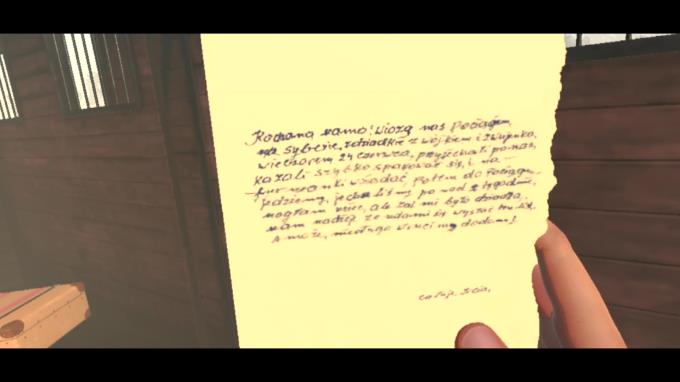 Kochana mamo! Wiozą nas pociągiem,
na syberię, z dziadkiem z wójkiem i Zbyszkiem,
wieczorem 24 czerwca, przyjechali po nas,
kazali szybko spakować się, i na
furmanki wsiadać, potem do pociągu.
jedziemy, jechaliśmy ponad 2 tygodnie,
ale żal mi było dziadka,
mam nadzieję że uda mi się wysłać ten list,
a może, niedługo wrócimy do domu!
całuję Zosia,